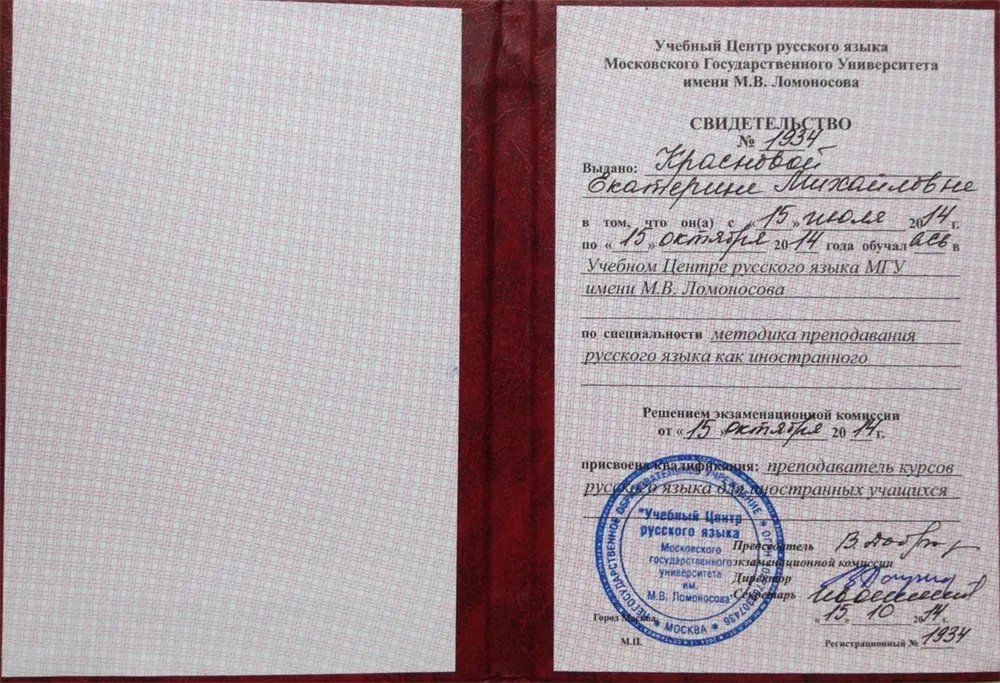 Учебный Центр русского языка
Московского Государственного Университета
имени М.В. Ломоносова
СВИДЕТЕЛЬСТВО
№ 1934
Выдано: Красновой
Екатерине Михайловне
в том, что он(а) с «15» июля 2014 г.
по «15» октября 2014 года обучалась в
Учебном Центре русского языка МГУ
имени М.В. Ломоносова
по специальности методика преподавания
русского языка как иностранного
Решением экзаменационной комиссии
от «15» октября 2014 г.
присвоена квалификация: преподаватель курсов
русского языка для иностранных учащихся
НЕГОСУДАРСТВЕННОЕ ОБРАЗОВАТЕЛЬНОЕ УЧРЕЖДЕНИЕ
* МОСКВА *
"Учебный Центр
русского языка
Московского
государственного
университета
им.
М.В. Ломоносова"
Председатель
экзаменационной комиссии
Директор
Секретарь
Город Москва «15» 10 2014 г.
М.П. Регистрационный № 1934